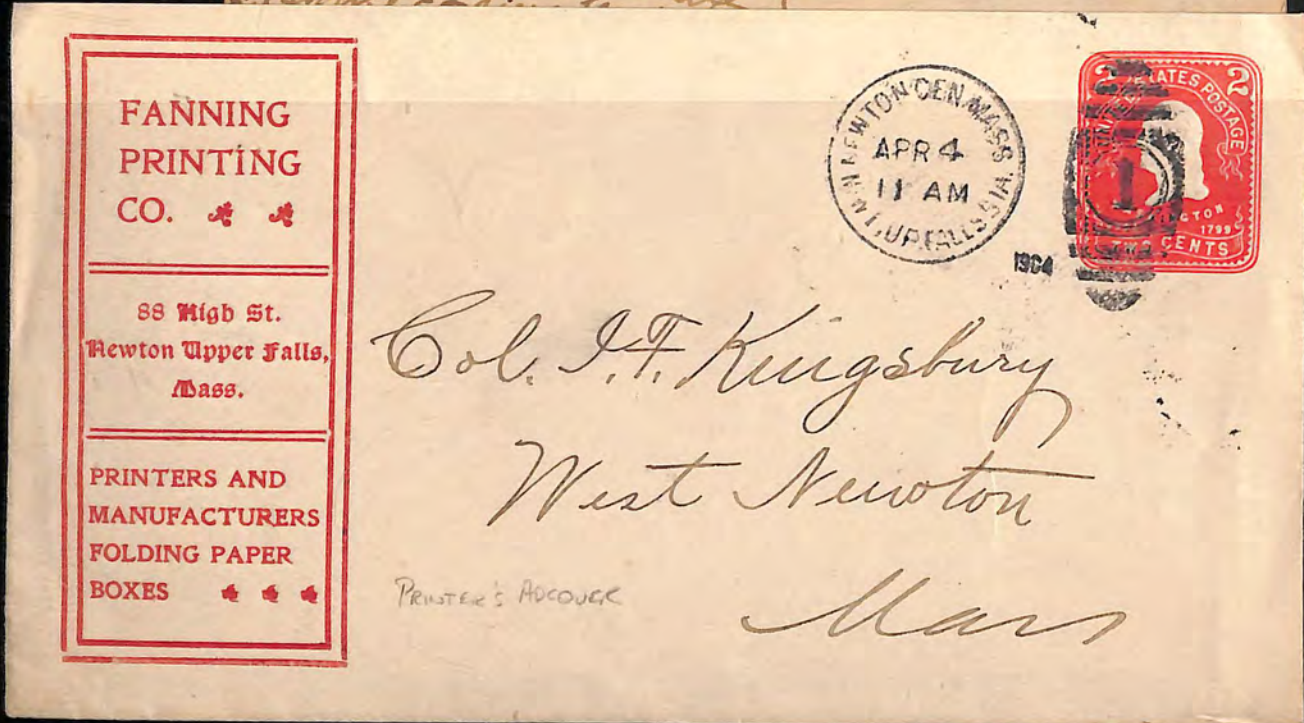 FANNING
PRINTING
CO.
88 High St.
Newton Upper Falls,
Mass.
PRINTERS AND
MANUFACTURERS
FOLDING PAPER
BOXES
NEWTON CEN. MASS.
APR 4
11 AM
NWT. UP. FALLS STA.
1904
2 UNITED STATES POSTAGE 2
1
1799
TWO CENTS
Col. I. F. Kingsbury
West Newton
Mass
PRINTER'S ADCOVER